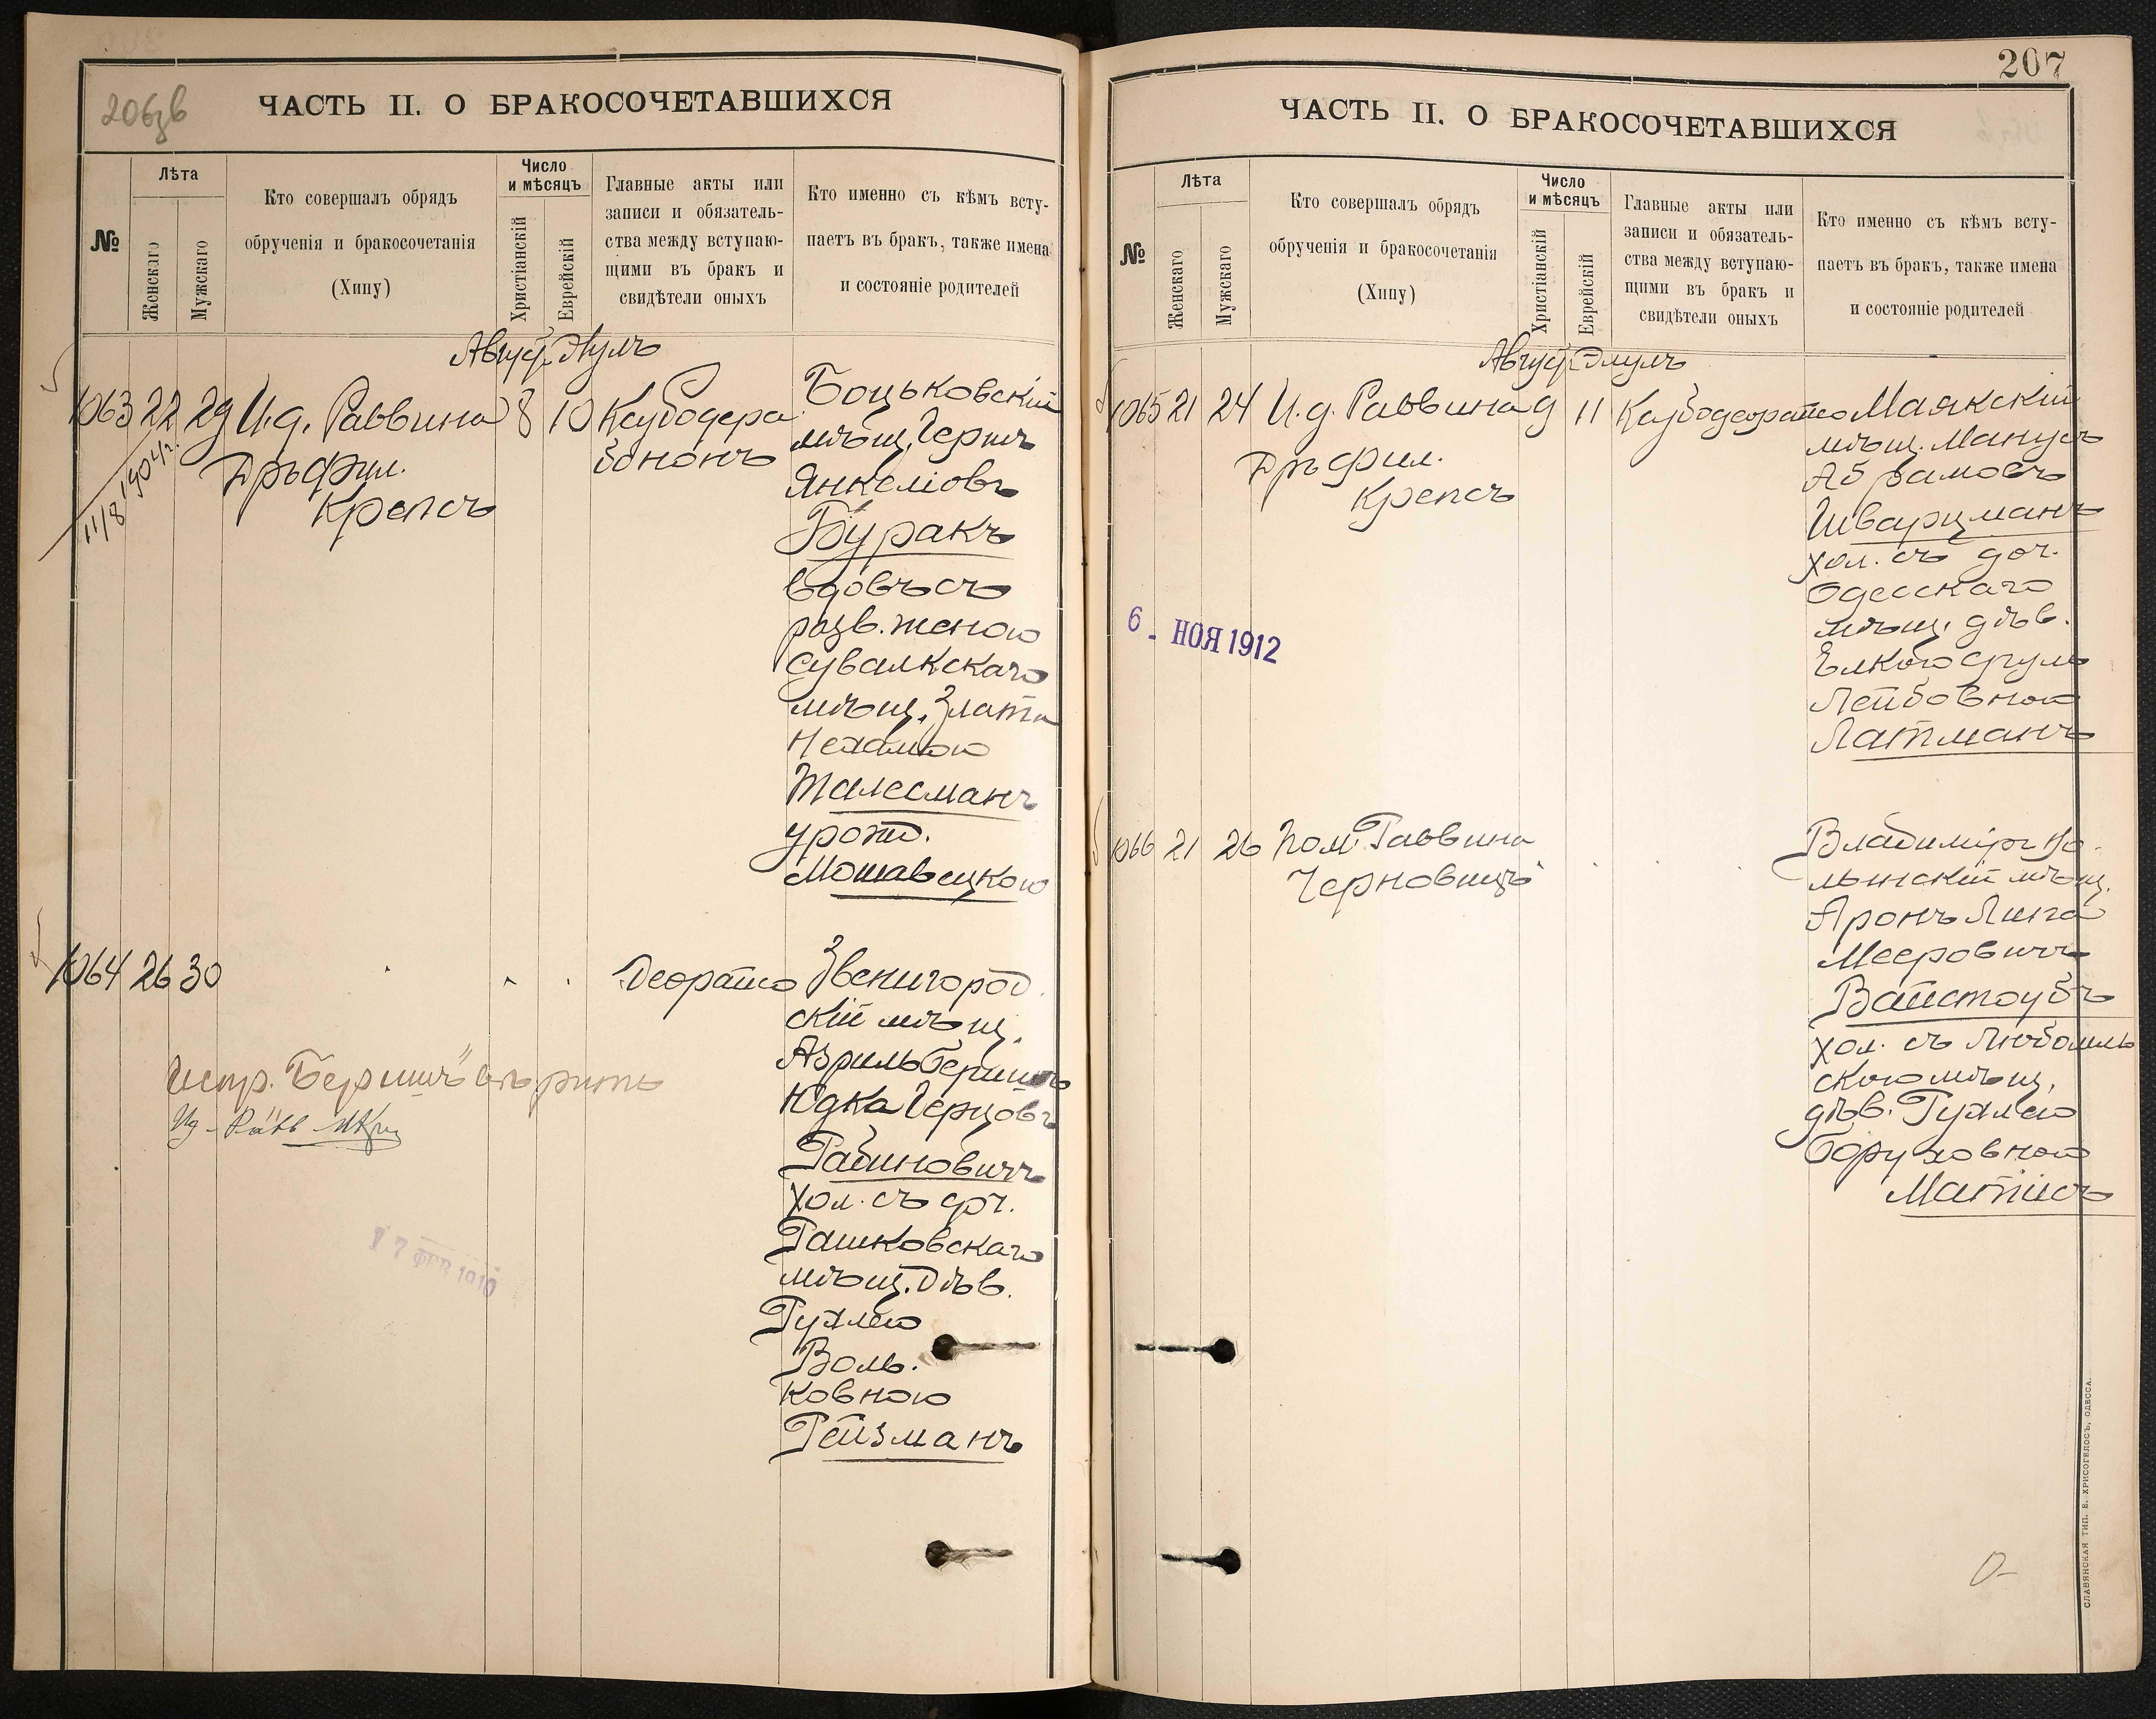 206зв
ЧАСТЬ II. О БРАКОСОЧЕТАВШИХСЯ
№
Лѣта
Женскаго
Мужскаго
Кто совершалъ обрядъ
обрученія и бракосочетанія
(Хипу)
Число
и мѣсяцъ
Христіанскій
Еврейскій
Главные акты или
записи и обязатель-
ства между вступаю-
щими въ бракъ и
свидѣтели оныхъ
Кто именно съ кѣмъ всту-
паетъ въ бракъ, также имена
и состояніе родителей
1063 22 29 И.д. Раввина 8 10
Дръ Фил.
Крепсъ
11/8 904 г.
Боцьковскій
мѣщ. Гершъ
Янкеліовъ
Буракъ
вдовъ съ
разв. женою
Сувалкскаго
мѣщ. Злата
Нехамою
Талесманъ
урожд.
Мошавецкою
1064 26 30
Звенигород
скій мѣщ.
Азриль Бершъ
Юдка Герцовъ
Рабиновичъ
хол. съ доч.
Рашковскаго
мѣщ. дѣв.
Рухлею
Воль.
ковною
Рейзманъ
17 ФЕВ 1910
207
ЧАСТЬ II. О БРАКОСОЧЕТАВШИХСЯ
№
Лѣта
Женскаго
Мужскаго
Кто совершалъ обрядъ
обрученія и бракосочетанія
(Хипу)
Число
и мѣсяцъ
Христіанскій
Еврейскій
Главные акты или
записи и обязатель-
ства между вступаю-
щими въ бракъ и
свидѣтели оныхъ
Кто именно съ кѣмъ всту-
паетъ въ бракъ, также имена
и состояніе родителей
Август. Элулъ
1065 21 24 И.д. Раввина 9 11
Дръ Фил.
Крепсъ
Маякскій
мѣщ. Манусъ
Абрамовъ
Шварцманъ
хол. съ доч.
Одесскаго
мѣщ. дѣв.
Елкою Сруль
Лейбовною
Латманъ
6 - НОЯ 1912
1066 21 26 Пом. Раввина
Черновицъ
Владимір Во-
лынскій мѣщ.
Аронъ Липа
Мееровичъ
Вайстоубъ
хол. съ Любомль
скою мѣщ.
дѣв. Рухлею
Боруховною
Матисъ
СЛАВЯНСКАЯ ТИП. Е. ХРИСОГЕЛОСЪ, ОДЕССА.